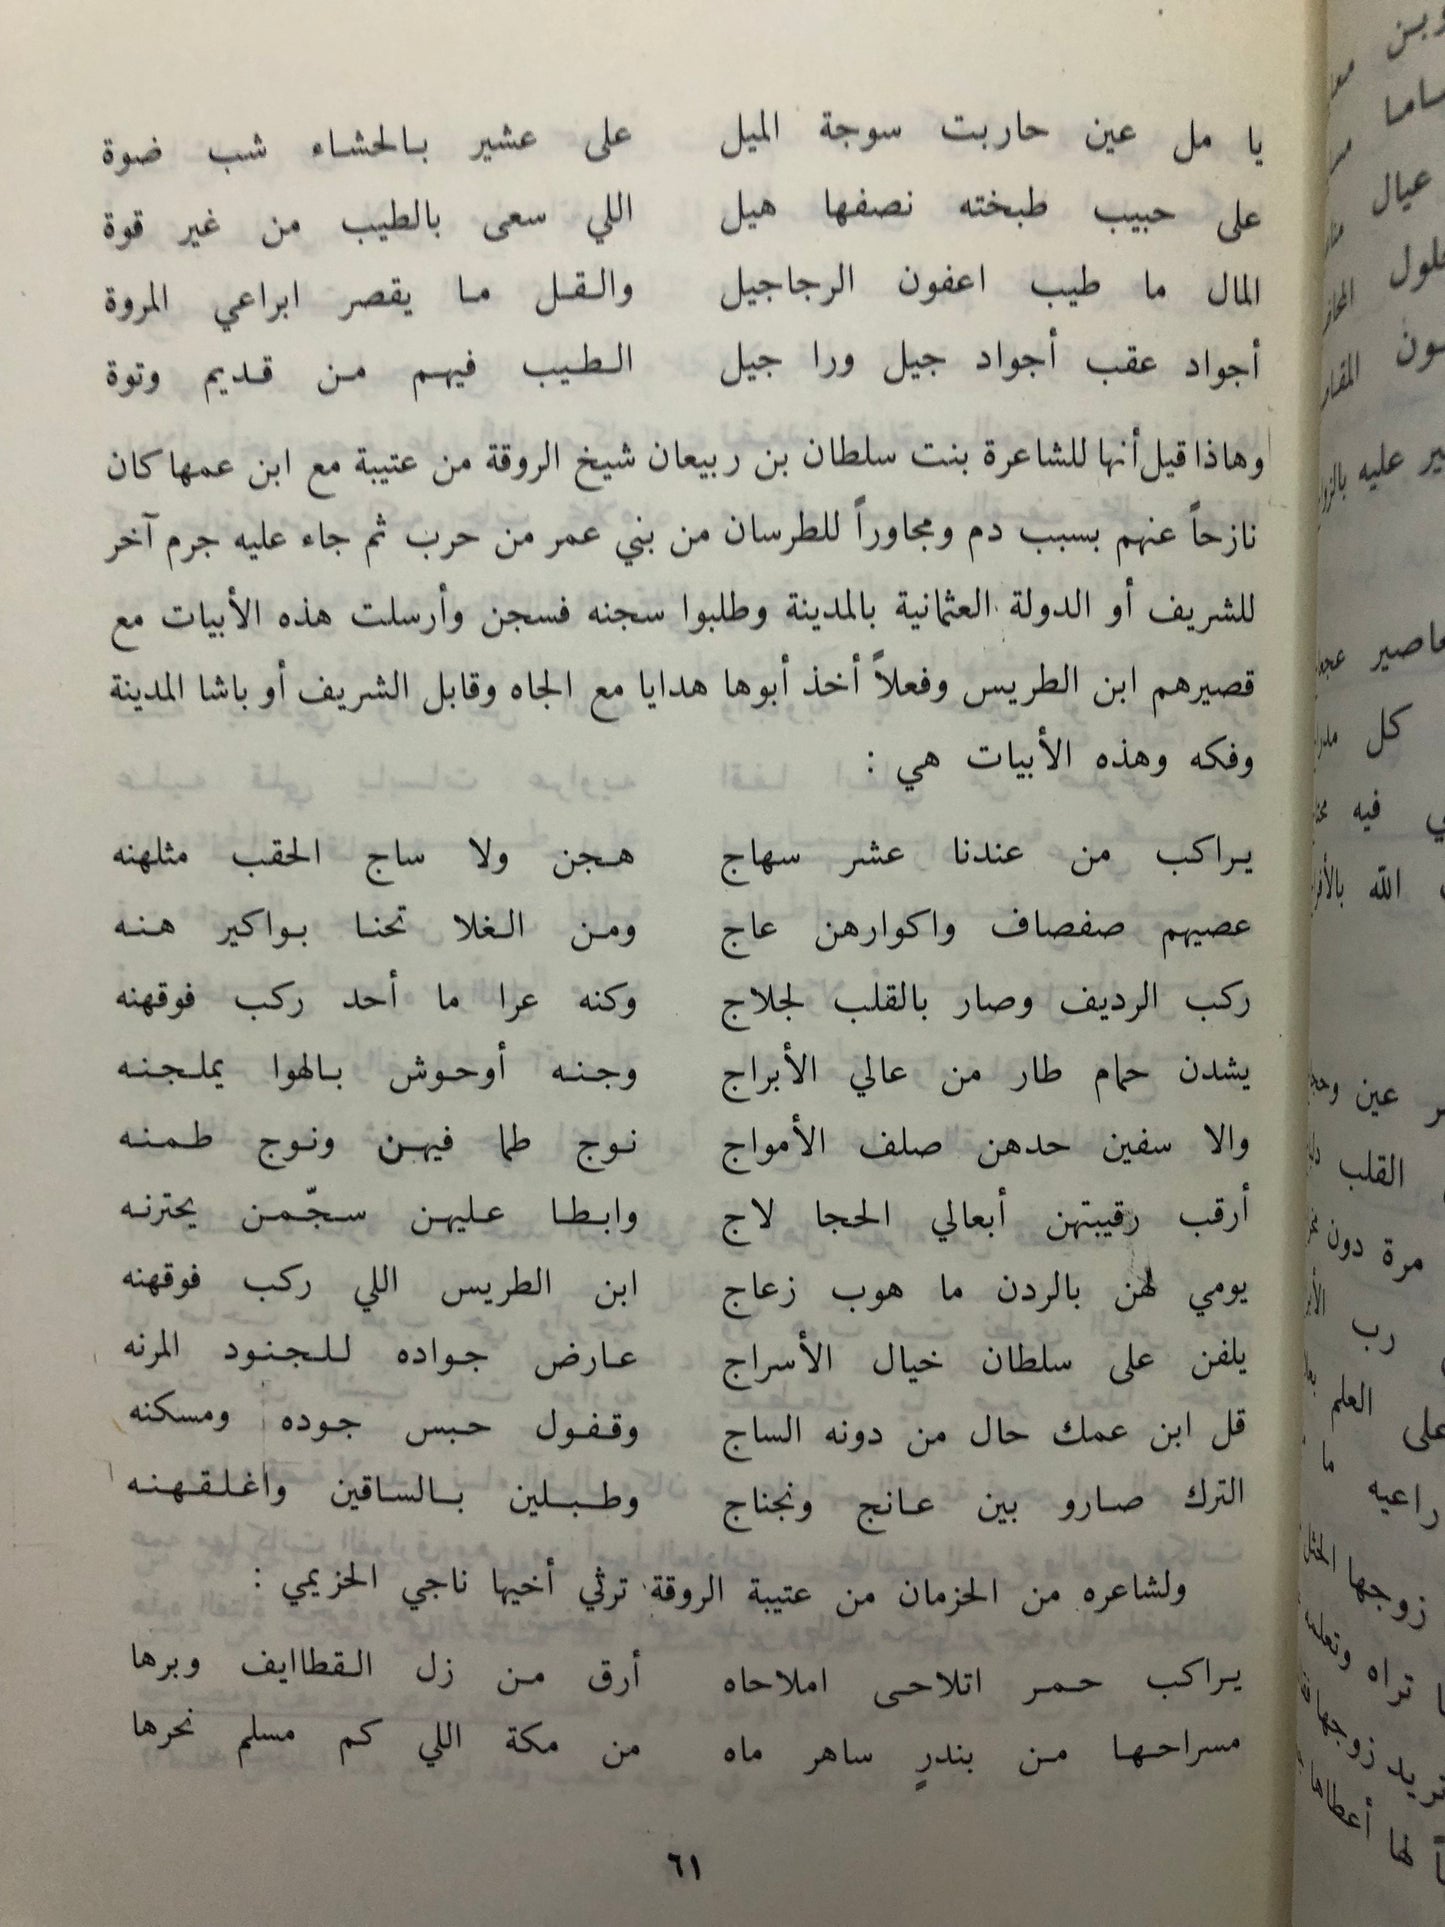 يا مل عين حاربت سوجة الميل على عشير بالحشاء شب ضوة
على حبيب طبخته نصفها هيل اللي سعى بالطيب من غير قوة
المال ما طيب اعفون الرجاجيل والقل ما يقصر ابراعي المروة
أجواد عقب أجواد جيل ورا جيل الطيب فيهم من قديم وتوة
وهاذا قيل أنها للشاعرة بنت سلطان بن ربيعان شيخ الروقة من عتيبة مع ابن عمها كان
نازحاً عنهم بسبب دم ومجاوراً للطرسان من بني عمر من حرب ثم جاء عليه جرم آخر
للشريف أو الدولة العثمانية بالمدينة وطلبوا سجنه فسجن وأرسلت هذه الأبيات مع
قصيرهم ابن الطريس وفعلاً أخذ أبوها هدايا مع الجاه وقابل الشريف أو باشا المدينة
وفكه وهذه الأبيات هي :
يراكب من عندنا عشر سهاج هجن ولا ساج الحقب مثلهنه
عصيهم صفصاف واكوارهن عاج ومن الغلا تحنا بواكير هنه
ركب الرديف وصار بالقلب لجلاج وكنه عرا ما أحد ركب فوقهنه
يشدن حمام طار من عالي الأبراج وجنه أوحوش بالهوا يملجنه
والا سفين حدهن صلف الأمواج نوج طما فيهن ونوج طمنه
أرقب رقيبتهن أبعالي الحجا لاج وابطا عليهن سجّمن يحترنه
يومي لهن بالردن ما هوب زعاج ابن الطريس اللي ركب فوقهنه
يلفن على سلطان خيال الأسراج عارض جواده للجنود المرنه
قل ابن عمك حال من دونه الساج وقفول حبس جوده ومسكنه
الترك صارو بين عانج ونجناج وطبلين بالساقين واغلقهنه
ولشاعره من الحزمان من عتيبة الروقة ترثي أخيها ناجي الحزيمي :
يراكب حمر اتلاحى املاحاه أرق من زل القطاايف وبرها
مسراحها من بندرٍ ساهر ماه من مكة اللي كم مسلم نحرها
٦١